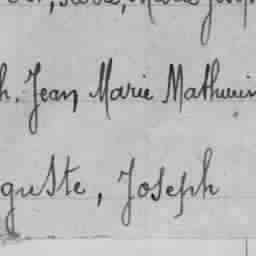 h. Jean Marie Mathurin
guste, Joseph